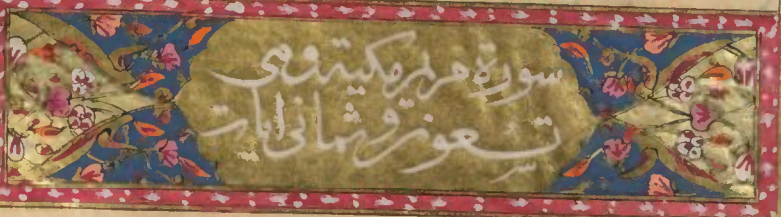 سورة مريم مكية وهى
تسعون وثمانى ايات